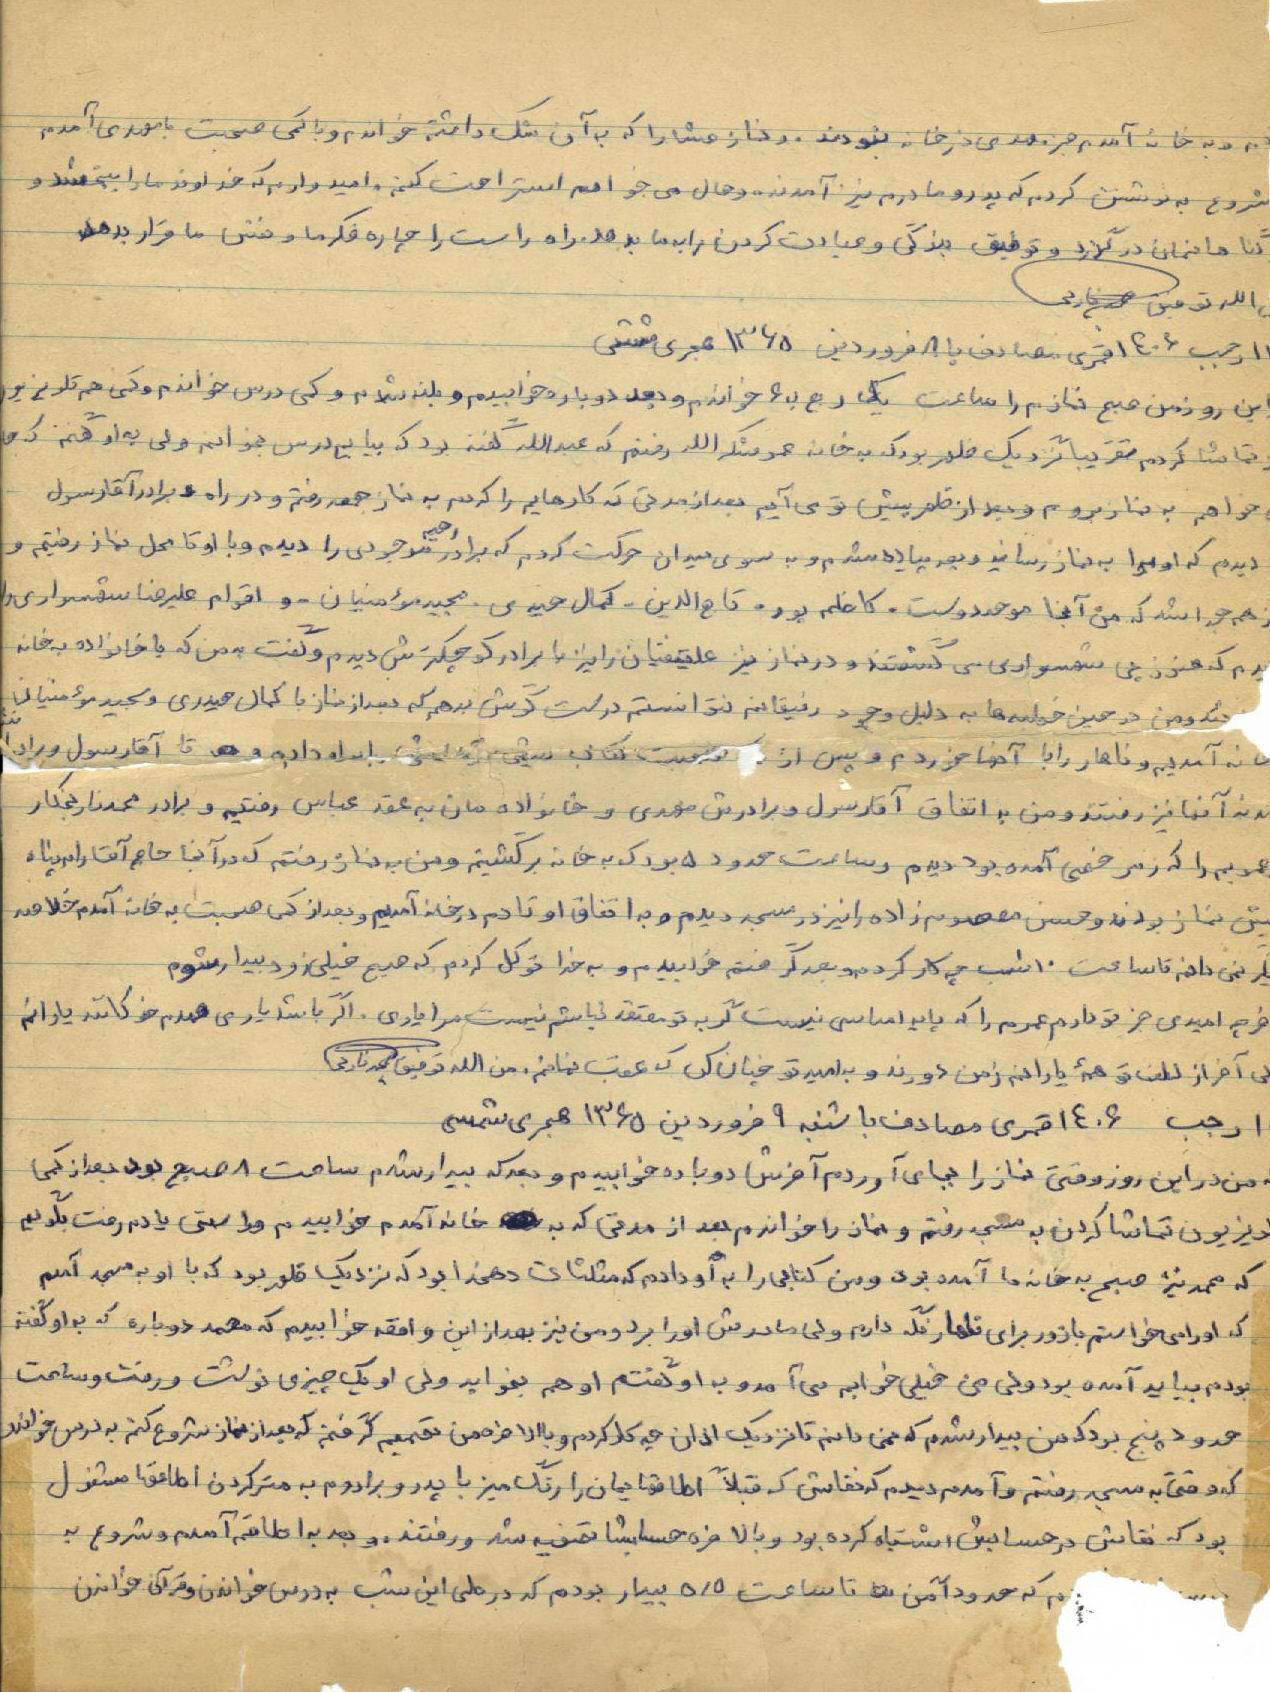 و به خانه آمدم جز مهدی در خانه نبودند. و نماز عشا را که به آن شک داشتم خواندم و با کمی صحبت با مهدی آمدم
شروع به نوشتن کردم که پدر و مادرم نیز آمدند. و حال می خواهم استراحت کنم. امیدوارم که خداوند ما را ببخشد و
گناهانمان درگذرد و توفیق بندگی و عبادت کردن را به ما بدهد. راه راست را چاره فکر ما و منش ما قرار بدهد
الله توفیق
رجب ۱۴۰۶ قمری مصادف با ۸ فروردین ۱۳۶۵ هجری شمسی
این روز من صبح نمازم را ساعت یک ربع به ۶ خواندم و بعد دوباره خوابیدم و بلند شدم و کمی درس خواندم و کمی هم تلویزیون
تماشا کردم تقریبا نزدیک ظهر بود که به خانه عمو شکرالله رفتم که عبدالله گفته بود که بیا بیم درس بخوانیم ولی به او گفتم که
خواهم به نماز بروم و بعد از ظهر پیش تو می آیم بعد از مدتی که کارهایم را کردم به نماز جمعه رفتم و در راه برادر آقا رسول
دیدم که او مرا به نماز رساند و بعد پیاده شدم و به سوی میدان حرکت کردم که برادر رحیم موجودی را دیدم و با او تا محل نماز رفتیم و
از هم جدا شد که من آنجا موحد دوست. کاظم پور. تاج الدین. کمال حیدری. مجید مؤمنیان. و اقوام علیرضا شهسواری
دیدم که هنوز پی شهسواری می گشتند و در نماز نیز را نیز با برادر کوچکترش دیدم و گفت به من که با خانواده به خانه
و من در حین خطبه ها به دلیل وجود رفیقانم نتوانستم درست گوش بدهم که بعد از نماز با کمال حیدری و مجید مؤمنیان
خانه آمدیم و ناهار را با آنها خوردم و پس از صحبت کتاب را به او دادم و تا آقا رسول و برادر
آنها نیز رفتند و من به اتفاق آقا رسول و برادرش مهدی و خانواده مان به عقد عباس رفتیم و برادر محمد نارنجکار
را که زمر خصی آمده بود دیدم و ساعت حدود ۵ بود که به خانه برگشتیم و من به نماز رفتم که در آنجا حاج آقا
پیش نماز بودند و حسن معصوم زاده را نیز در مسجد دیدم و به اتفاق او تا دم در خانه آمدیم و بعد از کمی صحبت به خانه آمدم خلاصه
دیگر نمی دانم تا ساعت ۱۰ شب چه کار کردم و بعد گرفتم خوابیدم و به خدا توکل کردم که صبح خیلی زود بیدار شوم
چه امیدی جز تو دارم عمرم را که پایه اساسی نیست گر به تو معتقد نباشم نیست مرا یاری. اگر باشد یاری همدم
آخر از لطف تو همهٔ یارانم ز من دورند و به امید تو چنان کن که عقب نمانم. من الله توفیق
رجب ۱۴۰۶ قمری مصادف با شنبه ۹ فروردین ۱۳۶۵ هجری شمسی
من در این روز وقتی نماز را بجای آوردم آخرش دوباره خوابیدم و بعد که بیدار شدم ساعت ۸ صبح بود بعد از کمی
تلویزیون تماشا کردن به مسجد رفتم و نماز را خواندم بعد از مدتی که به خانه آمدم خوابیدم و راستی یادم رفت بگویم
که محمد نیز صبح به خانه ما آمده بود و من کتابی را به او دادم که مثلثات دهخدا بود که نزدیک ظهر بود که با او به مسجد آمدیم
که او را می خواستم با زور برای ناهار نگه دارم ولی مادرش او را برد و من نیز بعد از این واقعه خوابیدم که محمد دوباره که به او گفته
بودم بیاید آمده بود ولی من خیلی خوابم می آمد و به او گفتم او هم بخوابد ولی او یک چیزی نوشت و رفت و ساعت
حدود پنج بود که من بیدار شدم که نمی دانم تا نزدیک اذان چه کار کردم و بالاخره من تصمیم گرفتم که بعد از نماز شروع کنم به درس خواندن
که وقتی به مسجد رفتم و آمدم دیدم که نقاش که قبلاً اطاقهایمان را رنگ میزد با پدر و برادرم به متر کردن اطاقها مشغول
بود که نقاش در حسابش اشتباه کرده بود و بالاخره حسابها تصفیه شد و رفتند. و بعد به اطاقم آمدم و شروع به
که حدوداً من تا ساعت ۵/۵ بیدار بودم که در طی این شب به درس خواندن و قرآن خواندن